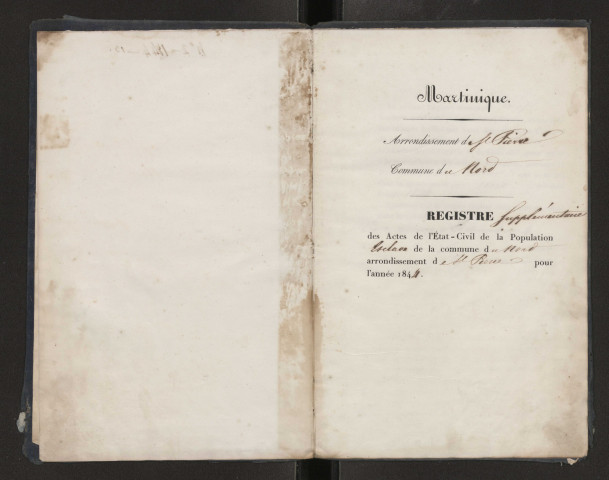 Martinique.
Arrondissement de St Pierre
Commune du Nord
REGISTRE Supplémentaire
des Actes de l'État-Civil de la Population
Esclave de la commune du Nord
arrondissement de St Pierre pour
l'année 1844.